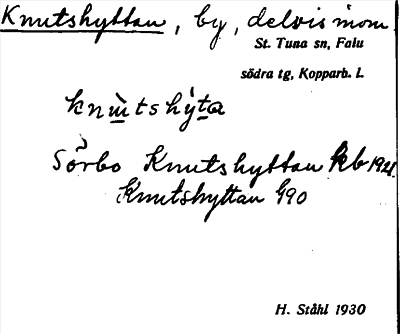 Knutshyttan, by, delvis inom
St. Tuna sn, Falu
södra tg, Kopparb. l.
knù̲tshỳt̲a
Sörbo Knutshyttan kb 1921
Knutshyttan G90
H. Ståhl 1930